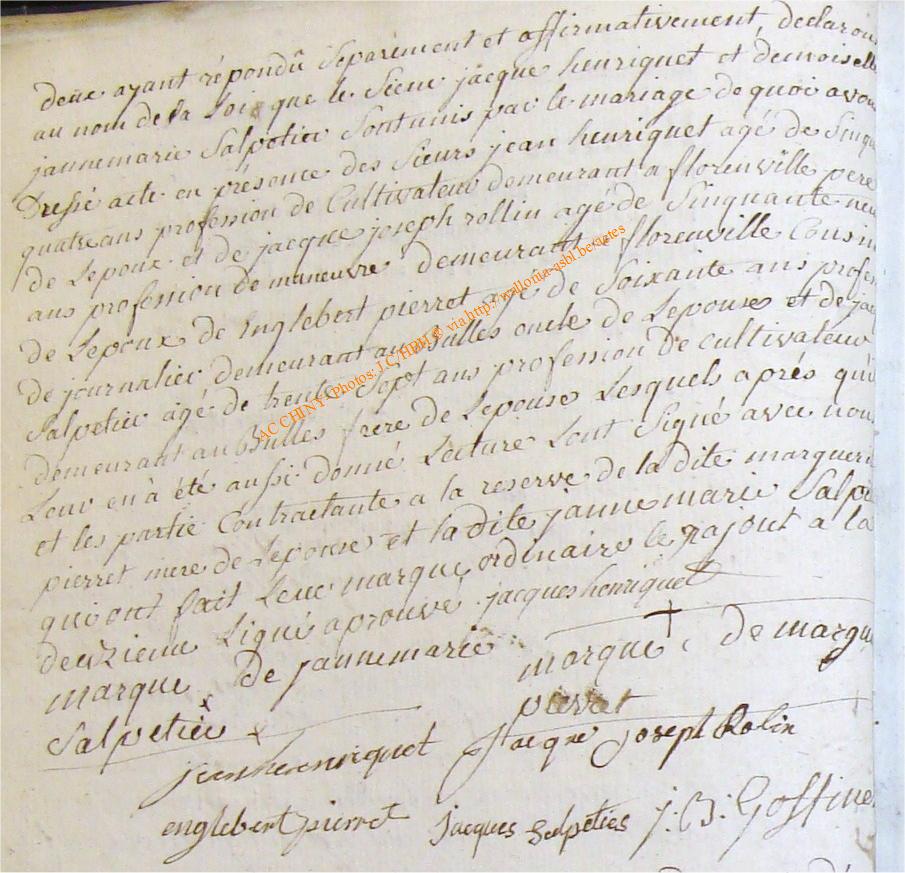 deux ayant répondû Séparément et affirmativement declarons
au nom de la Loi que le Sieur jacque henriquet et demoiselle
jannemarie Salpetier Sont unis par le mariage de quoi avons
Dressé acte en présence des Sieurs jean henriquet agé de Sinqu
quatre ans profession de Cultivateur demeurant a florenville pere
de Lepoux et de jacque joseph rollin agé de Sinquante neu
ans profession de maneuvre demeurant florenville Cousin
de Lepoux de Englebert pierret agé de Soixante ans profess
de journalier demeurant au Bulles oncle de Lepouse et de jac
Salpetier agé de trente Sept ans profession de cultivateur
demeurant au Bulles frere de Lepouse Lesquels aprés qu'i
Leur en à été aussi donné Lecture Lont Signé avec nou
et les partie Contractante a la reserve de la dite margueri
pierret mere de Lepouse et la dite jannemarie Salp
qui ont fait Leur marque ordinaire le rajout a la
deuxieme Ligne aprouvé jacques henriquet
marque de jannemarie marque de margu
Salpetier pierret
jean henriquet jacque joseph Rolin
englebert pierret jacques Salpeties J: B: Goffine
AC CHINY - Photos: J.C./HBM @ via http://wallonia-asbl.be/actes